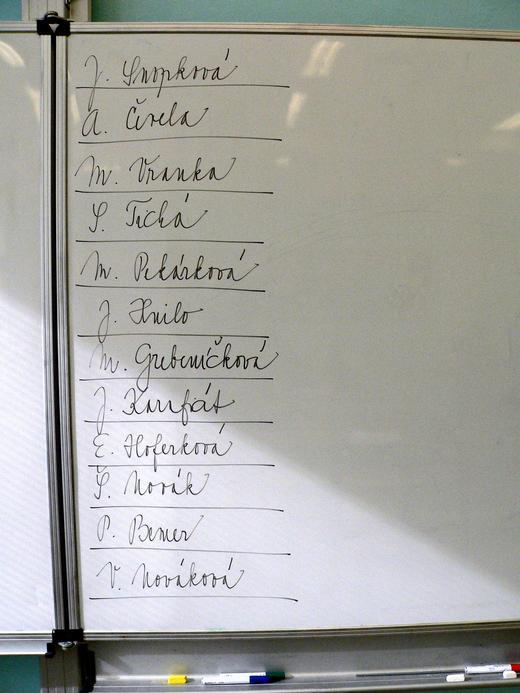 J. Snopková
A. Čivela
M. Vranka
S. Tichá
M. Pekárková
J. Hnilo
M. Grebeníčková
J. Karafiát
E. Hoferková
Š. Novák
P. Bener
V. Nováková